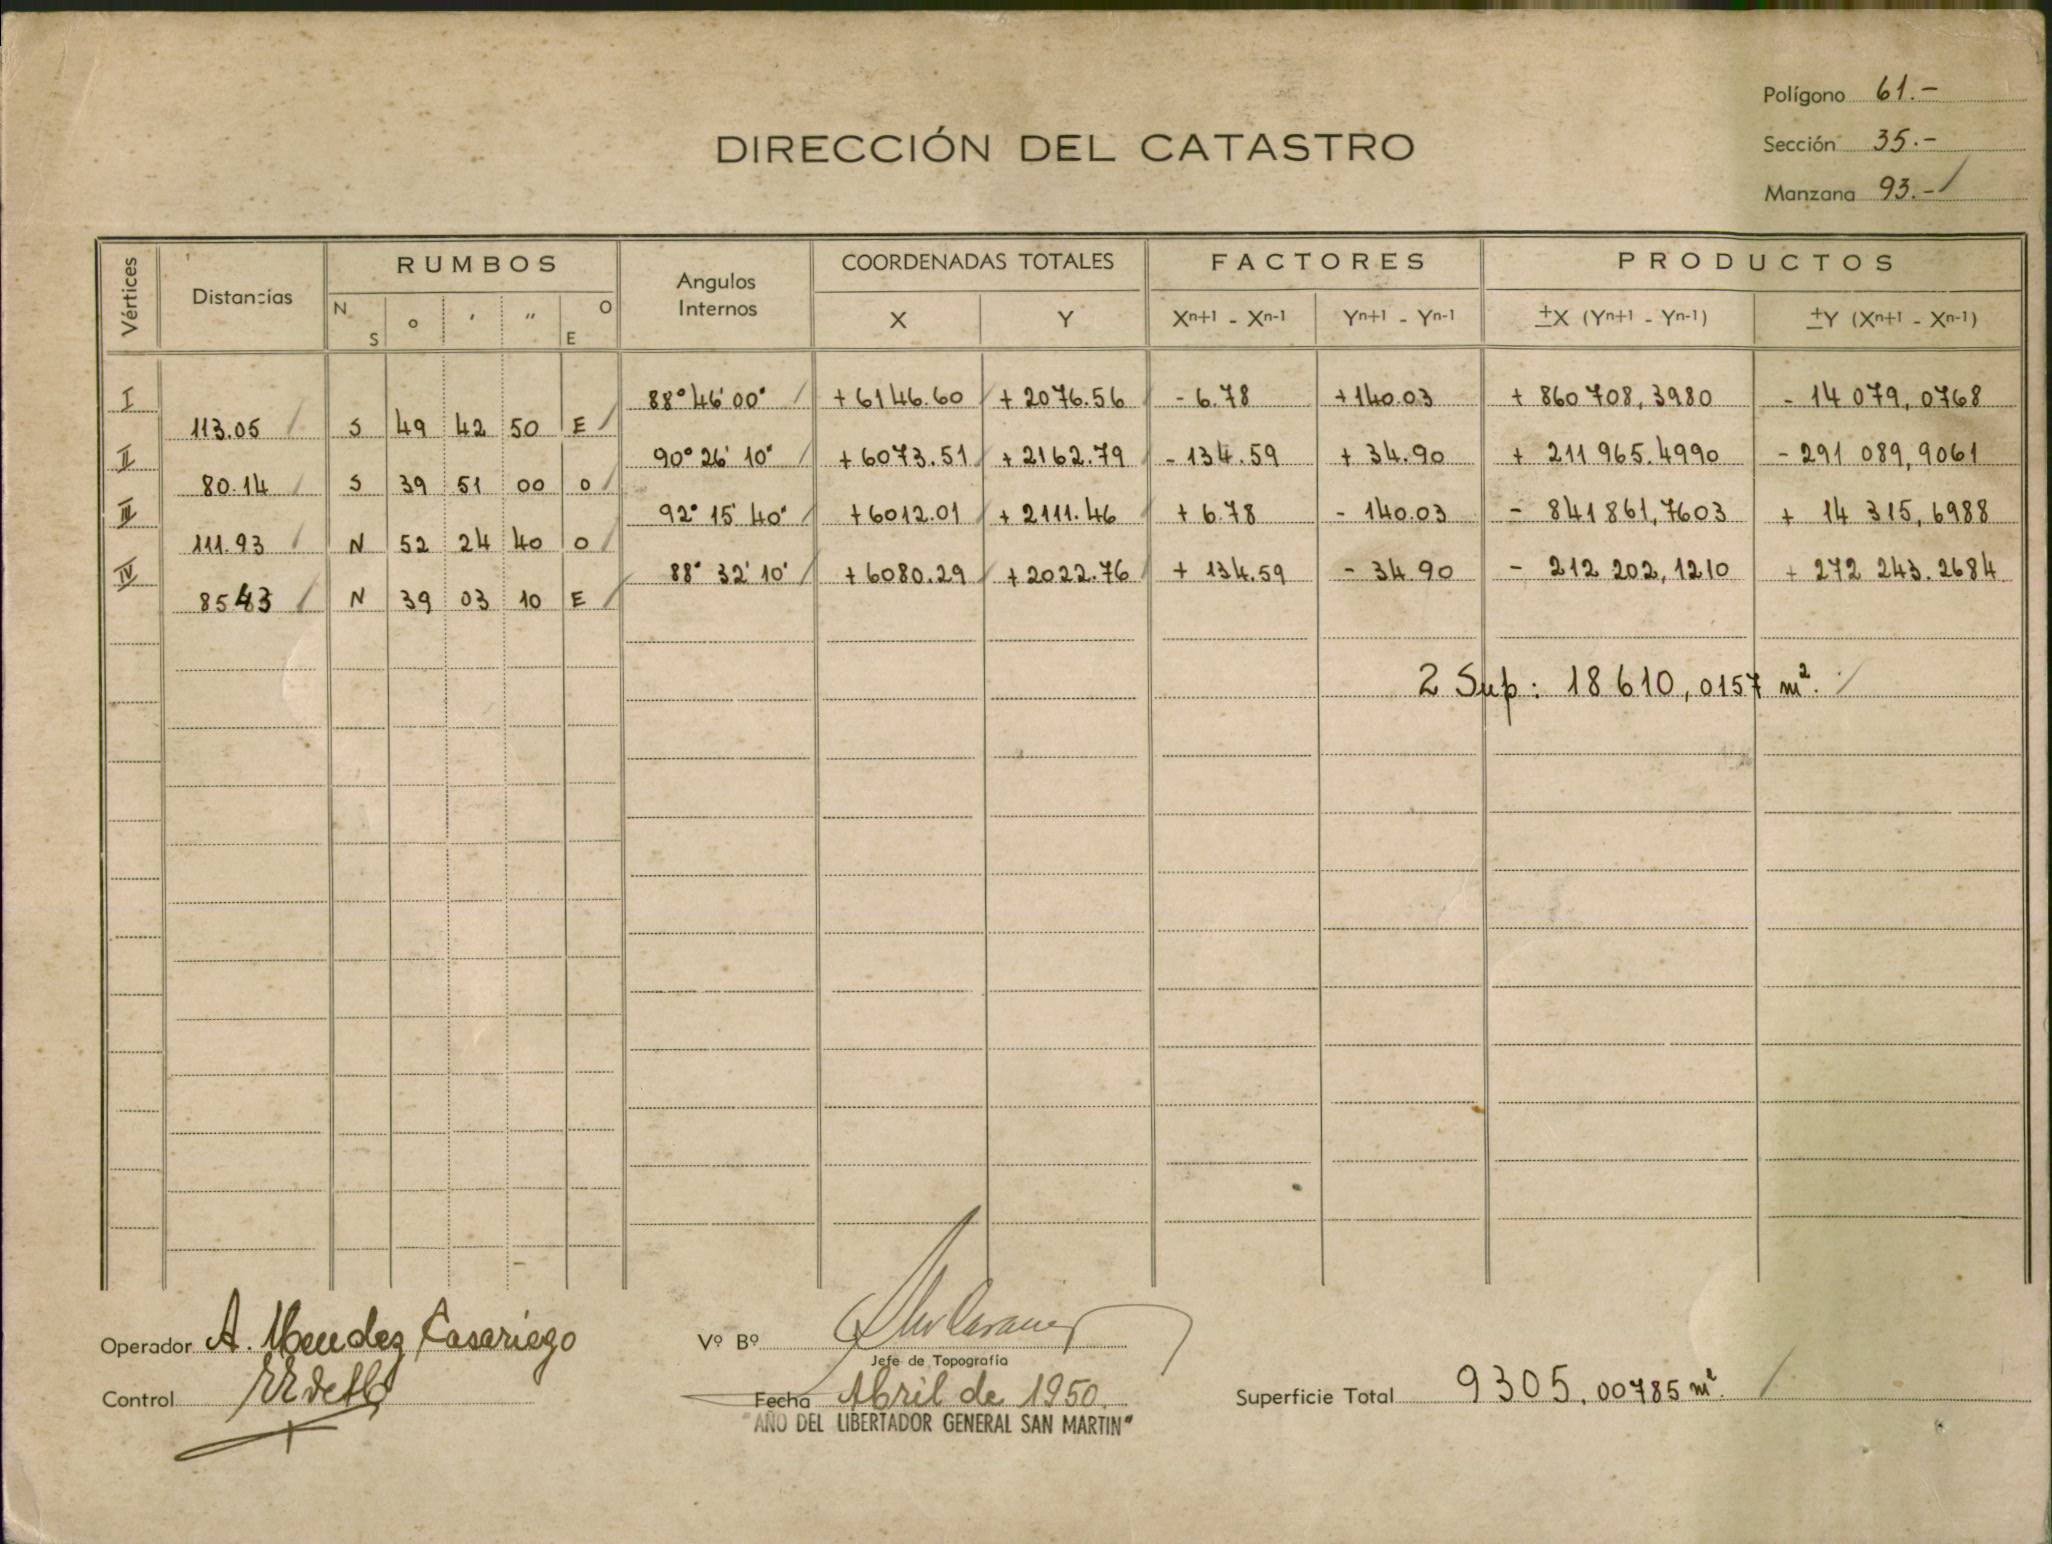 Polígono 61.-
DIRECCIÓN DEL CATASTRO
Sección 35.-
Manzana 93.-
Vértices Distancias RUMBOS Angulos Internos COORDENADAS TOTALES FACTORES PRODUCTOS
N S ° ' " O E X Y Xn+1 - Xn-1 Yn+1 - Yn-1 ±X (Yn+1 - Yn-1) ±Y (Xn+1 - Xn-1)
I 88° 46' 00" +6146.60 +2076.56 -6.78 +140.03 + 860 708,3980 - 14 079,0768
113.05 S 49 42 50 E
II 90° 26' 10" +6073.51 +2162.79 -134.59 +34.90 + 211 965.4990 - 291 089,9061
80.14 S 39 51 00 O
III 92° 15' 40" +6012.01 +2111.46 +6.78 -140.03 - 841 861,7603 + 14 315,6988
111.93 N 52 24 40 O
IV 88° 32' 10" +6080.29 +2022.76 +134.59 -34.90 - 212 202,1210 + 272 243.2684
85 43 N 39 03 10 E
2 Sup: 18 610,0157 m².
Operador A. Mendez Casariego
Vº Bº
Jefe de Topografía
Control
Fecha Abril de 1950.
"AÑO DEL LIBERTADOR GENERAL SAN MARTIN"
Superficie Total 9305,00785 m².